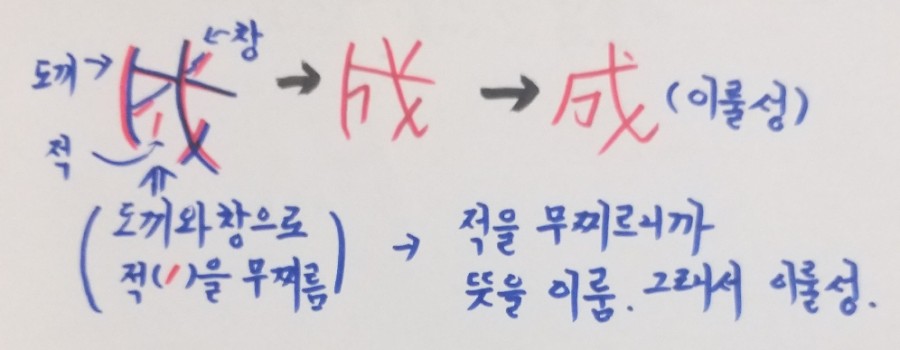 도끼→ ←창 → → 成 (이룰성)
적
(도끼와 창으로 → 적을 무찌르니까
적(/)을 무찌름) 뜻을 이룸. 그래서 이룰성.